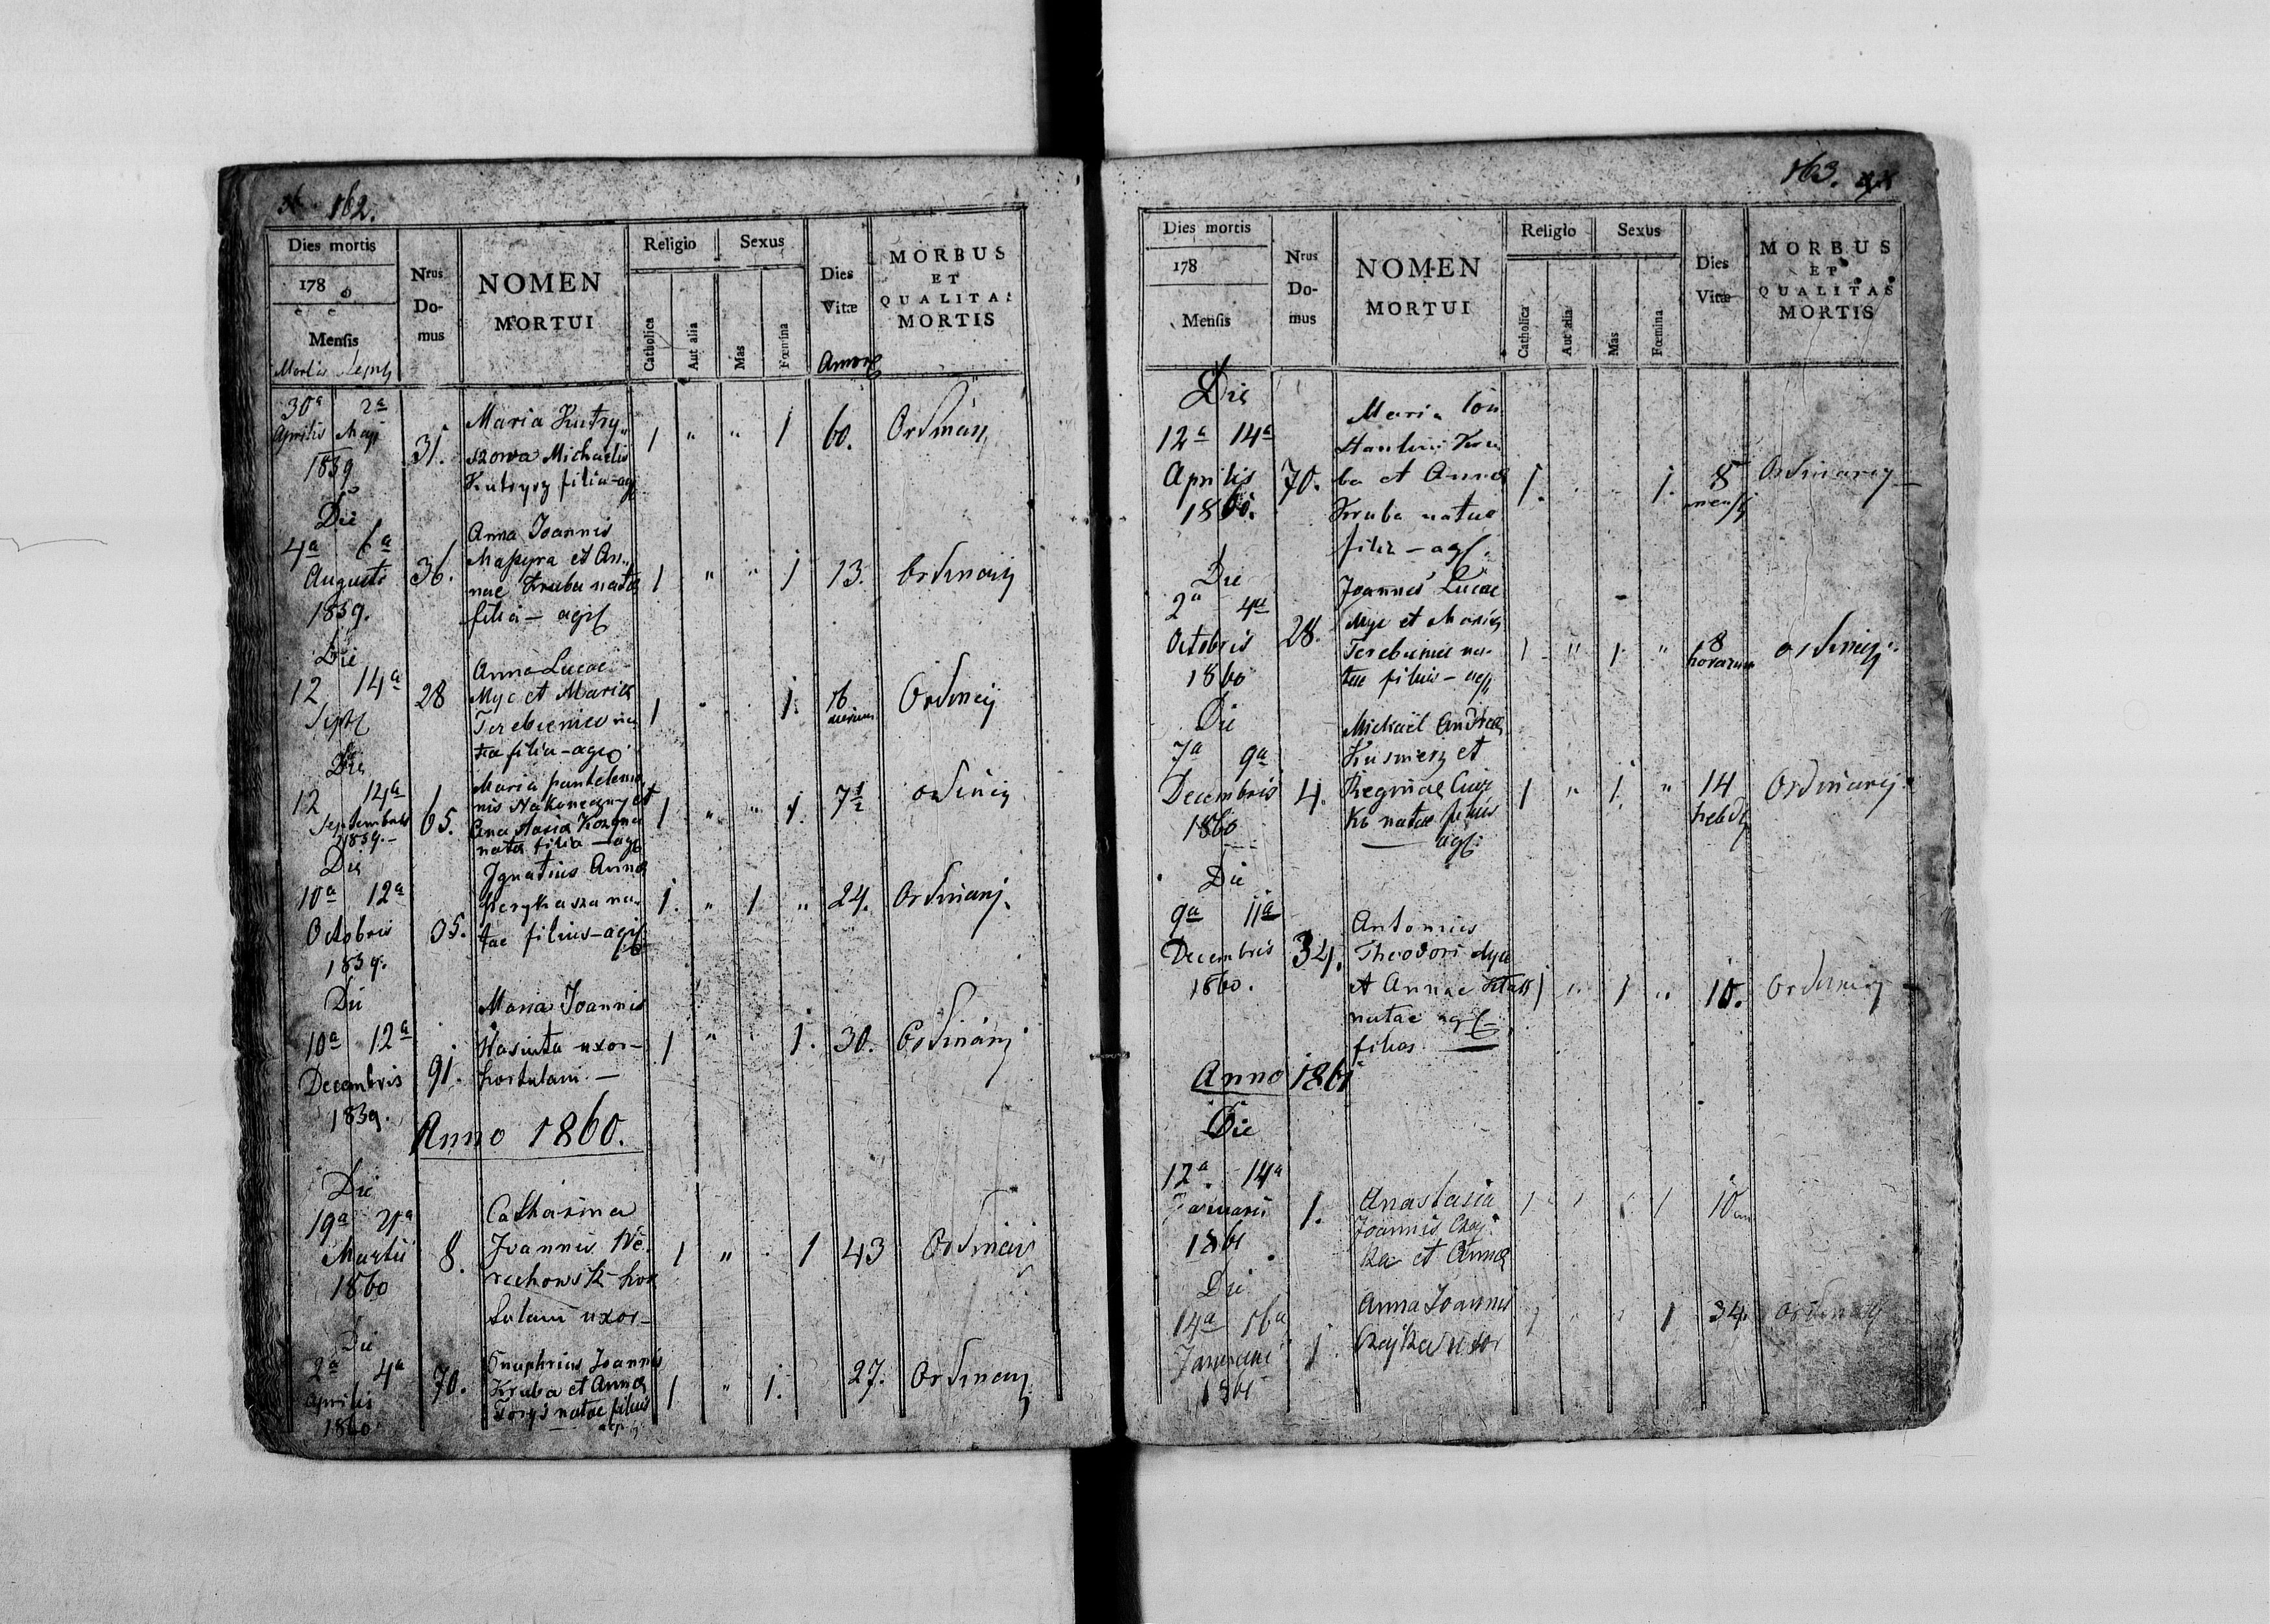 162.
Dies mortis
178
Mensis
Mortis Sepul
Nrus Do-mus
NOMEN
MORTUI
Religio
Catholica
Aut alia
Sexus
Mas
Fœmina
Dies
Vitæ
Annor
MORBUS
ET
QUALITAS
MORTIS
30a 2a
Aprilis Maji
1859
31.
Maria Kutry
szowa Michaelis
Kutrysz filia - ag
1 " " 1 60. Ordinari
Die
4a 6a
Augusti
1859.
36.
Anna Joannis
Masyra et An-
nae Kruba nata
filia - agr
1 " " 1 13. Ordinarij
Die
12 14a
Septe
28
Anna Lucae
Myc et Maria
Terebieniec na
ta filia - agr
1 " " 1. 16 Ordinarij
Die
12 14a
Septembris
1859. -
65.
Maria panteleimo
nis Nakoneczny et
Anastasia
nata filia - agr
1 " " 1. 7 1/2 ordinarij
Die
10a 12a
Octobris
1859.
35.
Ignatius Anna
na-
tae filius - agr
1. " 1 " 24. Ordinarij.
Die
10a 12a
Decembris
1859.
91.
Maria Joannis
Wasiuta uxor -
hortulani. -
1 " " 1. 30. Ordinarij
Anno 1860.
Die
19a 21a
Martii
1860
8.
Catharina
Joannis We-
rechowsk hor
tulani uxor -
1 " " 1 43 Ordinarij
Die
2a 4a
Aprilis
1860
70.
Onuphrius Joannis
Kruba et Anna
Torys natae filius
agr
1 " 1. 27. Ordinarij
163.
Dies mortis
178
Mensis
Nrus Do-mus
NOMEN
MORTUI
Religio
Catholica
Aut alia
Sexus
Mas
Fœmina
Dies
Vitæ
MORBUS
ET
QUALITAS
MORTIS
Die
12a 14a
Aprilis
1860.
70.
Maria Con
stantini Kru
ba et Anna
Kruba natae
filia - agr.
1. " " 1. 8 mens Ordinarij
Die
2a 4a
Octobris
1860
28.
Joannes Lucae
Myc et Maria
Terebieniec na-
tae filius - agr
1 " 1 " 8 horarum ordinarij
Die
7a 9a
Decembris
1860
4.
Michaël Andreae
Kusmerz et
Reginae
natae filius
agr.
1 " 1. " 14 hebd Ordinarij
Die
9a 11a
Decembris
1860.
34.
Antonius
Theodori Myc
et Annae
natae agr
filius
1 " 1 " 10. Ordinarij
Anno 1861
Die
12a 14a
Januarii
1861
1.
Anastasia
Joannis Czaj
ka et Anna
1 " " 1 10
Die
14a 16a
Januarii
1861
1
Anna Joannis
Czajka uxor
1 " " 1 34. Ordinarij